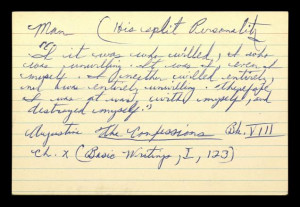 Man (His split Personality
"It it was who willed, I who
was unwilling. It was I, even I
myself. I neither willed entirely,
nor was entirely unwilling. Therefore
I was at war with myself, and
destroyed myself."
Augustine The Confessions Bk. VIII
Ch. X (Basic Writings, I, 123)